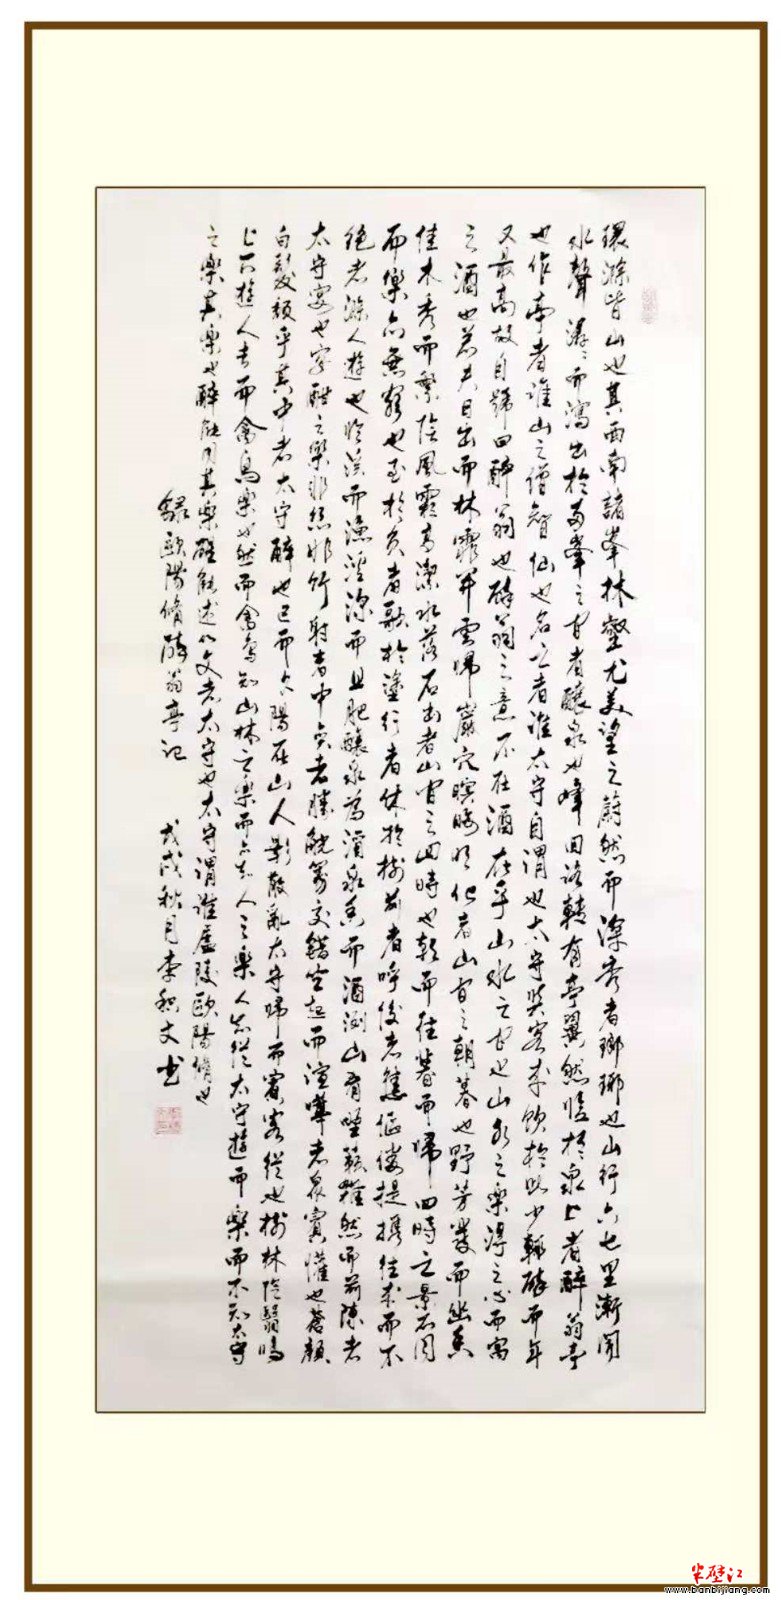 環滁皆山也其西南諸峯林壑尤美望之蔚然而深秀者瑯琊也山行六七里漸聞
水聲潺々而瀉出於兩峯之者釀泉也峰回路轉有亭翼然臨於泉上者醉翁亭
也作亭者誰山之僧智仙也名之者誰太守自謂也太守與客來飲於此少輒醉而年
又最高故自號曰醉翁也醉翁之意不在酒在乎山水之間也山水之樂得之心而寓
之酒也若夫日出而林霏開雲歸巖穴暝晦明化者山間之朝暮也野芳發而幽香
佳木秀而繁陰風霜高潔水落石出者山間之四時也朝而往暮而歸四時之景不同
而樂亦無窮也至於負者歌於塗行者休於樹前者呼後者應傴僂提攜往來而不
絕者滁人遊也臨溪而漁溪深而魚肥釀泉為酒泉香而酒洌山肴野蔌雜然而前陳者
太守宴也宴酣之樂非絲非竹射者中奕者勝觥籌交錯坐起而諠嘩者眾賓懽也蒼顏
白髮頹乎其中者太守醉也已而夕陽在山人影散亂太守歸而賓客從也樹林陰翳鳴
上下遊人去而禽鳥樂也然而禽鳥知山林之樂而不知人之樂人知從太守遊而樂而不知太守
之樂其樂也醉能同其樂醒能述以文者太守也太守謂誰廬陵歐陽脩也
錄歐陽脩醉翁亭記 戊戌秋月李文書
半壁江
www.banbijiang.com